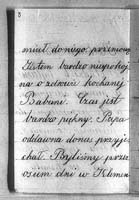 8
miał do niego, przeszony
Jestem bardzo niespokoj
na o zdrowie kochanej
Babuni. Czas jest
bardzo piękny. Papa
oddawna do nas przyje
chał. Byliśmy prze
osiem dni w Klemen